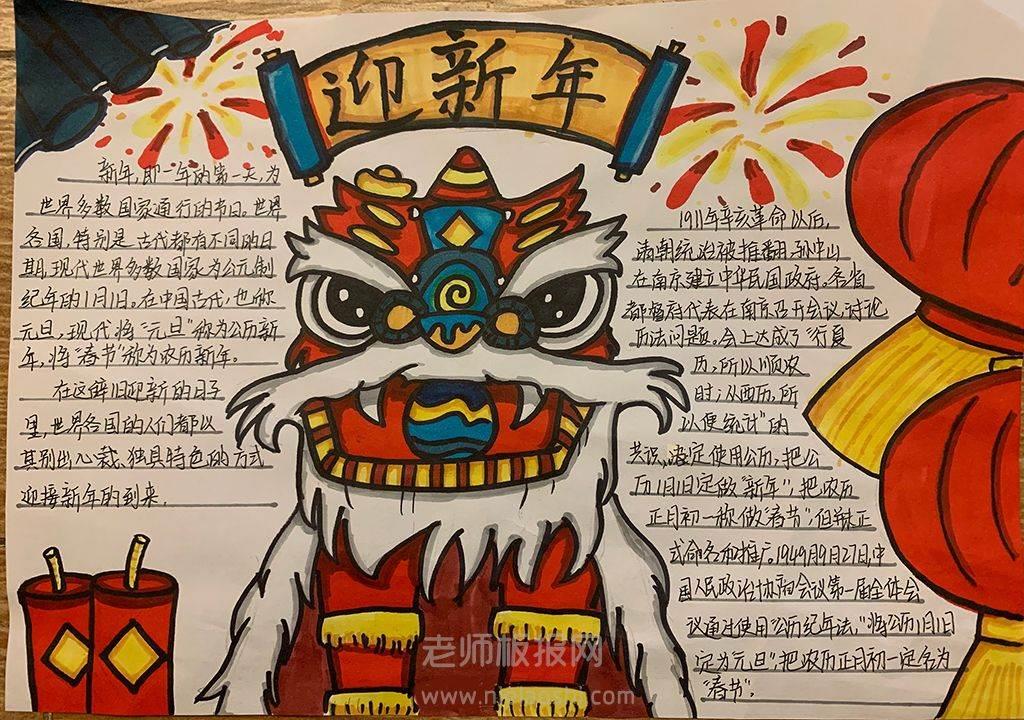 迎新年
新年,即一年的第一天,为
世界多数国家通行的节日。世界
各国,特别是古代都有不同的日
期,现代世界多数国家为公元制
纪年的1月1日。在中国古代,也称
元旦,现代将“元旦”称为公历新
年,将“春节”称为农历新年。
在这辞旧迎新的日子
里,世界各国的人们都以
其别出心裁、独具特色的方式
迎接新年的到来.
1911年辛亥革命以后,
清朝统治被推翻,孙中山
在南京建立中华民国政府。各省
都督府代表在南京召开会议,讨论
历法问题。会上达成了“行夏
历,所以顺农
时;从西历,所
以便统计”的
共识,决定使用公历,把公
历1月1日定做“新年”,把农历
正月初一称做“春节”,但并未正
式命名和推广。1949年9月27日,中
国人民政治协商会议第一届全体会
议通过使用“公历纪年法,”将公历1月1日
定为元旦”把农历正月初一定名为
“春节”.
老师板报网